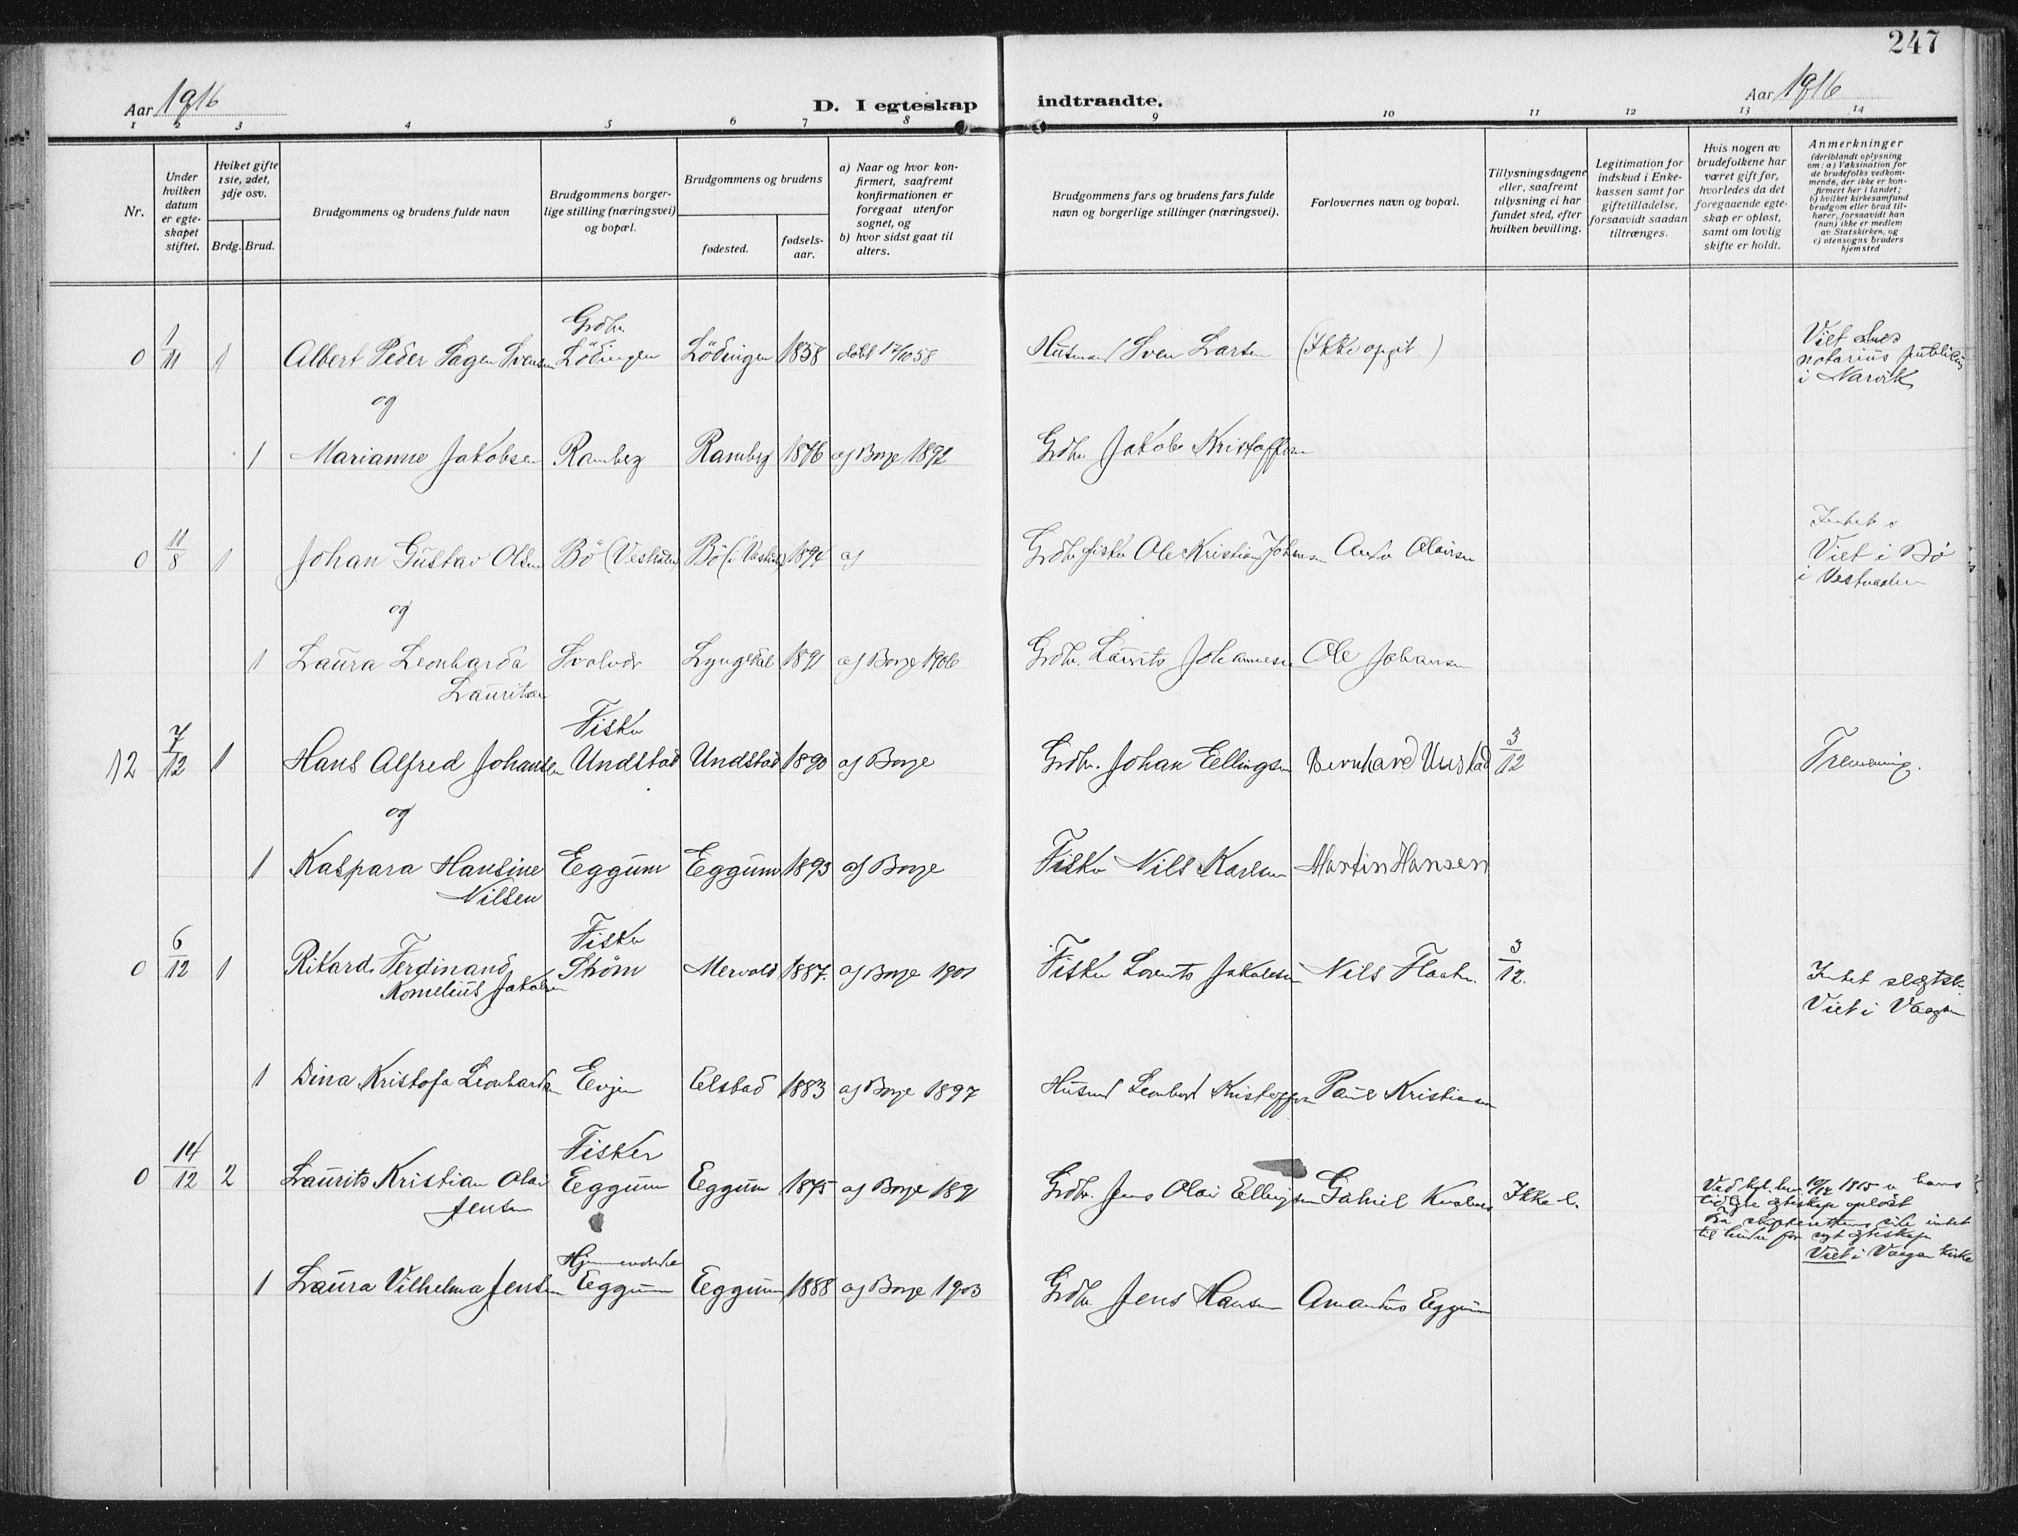 247
Aar 1916
D. I egteskap
indtraadte.
Aar 1916
1 2 3 4 5 6 7 8 9 10 11 12 13 14
Nr.
Under hvilken datum er egteskapet stiftet.
Hviket gifte 1ste, 2det, 3dje osv.
Brdg. Brud.
Brudgommens og brudens fulde navn
Brudgommens borgerlige stilling (næringsvei) og bopæl.
Brudgommens og brudens
fødested.
fødselsaar.
a) Naar og hvor konfirmert, saafremt konfirmationen er foregaat utenfor sognet, og
b) hvor sidst gaat til alters.
Brudgommens fars og brudens fars fulde navn og borgerlige stillinger (næringsvei).
Forlovernes navn og bopæl.
Tillysningsdagene eller, saafremt tillysning ei har fundet sted, efter hvilken bevilling.
Legitimation for indskud i Enkekassen samt for giftetilladelse, forsaavidt saadan tiltrænges.
Hvis nogen av brudefolkene har været gift før, hvorledes da det foregaaende egteskap er opløst, samt om lovlig skifte er holdt.
Anmerkninger
(deriblandt oplysning om: a) Vaksination for de brudefolks vedkommende, der ikke er konfirmert her i landet; b) hvilket kirkesamfund brudgom eller brud tilhører, forsaavidt han (hun) ikke er medlem av Statskirken, og c) utensogns bruders hjemsted
Grdbr.
0 1/11 1 Albert Peder Sagen Svensen Lödingen Lödingen 1858 döbt 17/10 58 Husmand Sven Larsen (Ikke opgit) Viet hos notarius publicus i Narvik
og
1 Marianne Jakobsen Ramberg Ramberg 1876 af Borge 1892 Grdbr. Jakob Kristoffersen
0 11/8 1 Johan Gustav Olsen Bö (Vesteraalen) Bö (i Vesteraalen) 1894 af Grdbr. fisker Ole Kristian Johansen Olavsen Intet s Viet i Bö i Vesteraalen
og
1 Laura Leonharda Lauritsen Svolvær Lyngedal 1891 af Borge 1906 Grdbr. Laurits Johannesen Ole Johansen
Fisker
12 7/12 1 Hans Alfred Johansen Undstad Undstad 1890 af Borge Grdbr. Johan Ellingsen Bernhard Unstad 3/12 Fremmening.
og
1 Kaspara Hansine Nilsen Eggum Eggum 1893 af Borge Fisker Nils Karlsen Martin Hansen
Fisker
0 6/12 1 Rikard Ferdinand Kornelius Jakobsen Ström Mervold 1887. af Borge 1901 Fisker Lorents Jakobsen Nils 3/12. Intet slegtsk. Viet i Vaagan
1 Dina Kristofa Leonhardsen Evjen Elstad 1883 af Borge 1897 Husmd Leonhard Kristoffersen Paul Kristiansen
Fisker
0 14/12 2 Laurits Kristian Olai Jensen Eggum Eggum 1875 af Borge 1891 Grdbr. Jens Olai Ellingsen Gabriel Ikke l. Ved kgl. 10/12 1915 hans tidligere egteskap oplöst
til hinder for nyt egteskap
Viet i Vaagan kirke
1 Laura Vilhelma Jensen Hjemmeværende Eggum Eggum 1888 af Borge 1903 Grdbr. Jens Hansen Amandus Eggum